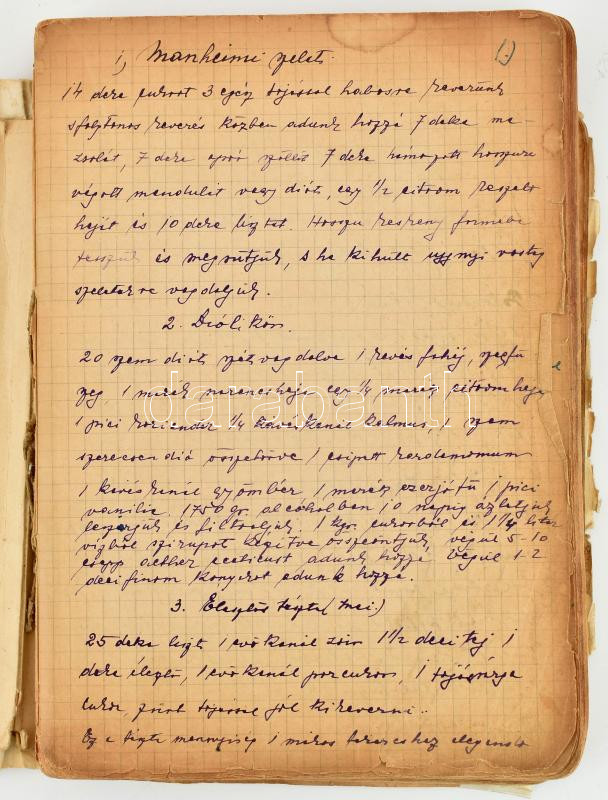 1, Manheimi szelet.
(1)
14 deka cukrot 3 egész tojással habosra keverünk
s folytonos keverés közben adunk hozzá 7 deka ma-
zsolát, 7 deka apró szőllőt 7 deka hámozott hosszura
vágott mandulát vagy diót, egy 1/2 citrom reszelt
haját és 10 deka lisztet. Hosszu keskeny formába
teszszük és megsütjük, s ha kihült ujjnyi vastag
szeletekre vagdaljuk.
2. Diólikőr.
20 szem diót szétvagdalva 1 kevés fahéj, szegfü
szeg 1 marék narancshaja egy 1/4 marék citromhaja
1 pici koriander 1/4 kávéskanál kalmus, 1 szem
szerecsendió összetörve 1 csipet kardamomum
1 kávéskanál gyömbér, 1 marék ezerjófü 1 pici
vanilia. 1750 gr. alcoholban 10 napig áztatjuk
leszürjük és filtráljuk. 1 kgr. cukorból és 1 1/4 liter
vizből szirupot készitve összeöntjük, végül 5-10
csepp aether aceticust adunk hozzá. Végül 1-2
deci finom konyakot adunk hozzá.
3. Élesztős tészta (
25 deka liszt 1 evőkanál zsir 1 1/2 deci tej 1
deka élesztő, 1 evőkanál porcukor, 1 tojássárga
tojással jól kikeverni.
Ez a tészta mennyiség 1 elegendő
darabanth